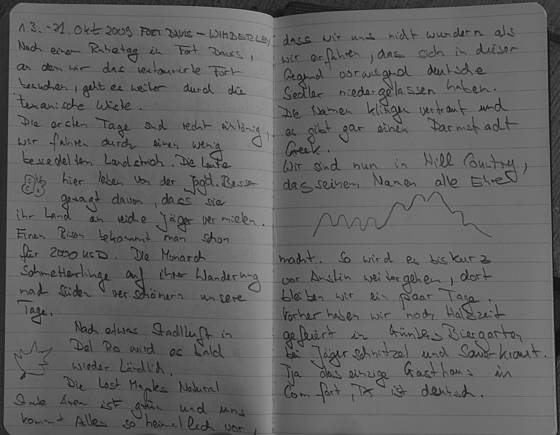 13.-21. Okt 2009 FORT DAVIS - WIMBERLEY
Nach einem Ruhetag in Fort Davis,
an dem wir das restaurierte Fort
besuchen, geht es weiter durch die
texanische Wüste.
Die ersten Tage sind recht eintönig,
wir fahren durch einen wenig
besiedelten Landstrich. Die Leute
hier leben von der Jagd. Besser
gesagt davon, dass sie
ihr Land an reiche Jäger vermieten.
Einen Bison bekommt man schon
für 2000 USD. Die Monarch
Schmetterlinge auf ihrer Wanderung
nach Süden verschönern unsere
Tage.
Nach etwas Stadtluft in
Del Rio wird es bald
wieder ländlich.
Die Lost Maples Natural
State Area ist grün und uns
kommt Alles so heimelich vor,
dass wir uns nicht wundern als
wir erfahren, das sich in dieser
Gegend vorwiegend deutsche
Siedler niedergelassen haben.
Die Namen klingen vertraut und
es gibt gar einen Darmstadt
Creek.
Wir sind nun in Hill Country,
das seinem Namen alle Ehre
macht. So wird es bis kurz
vor Austin weitergehen, dort
bleiben wir ein paar Tage.
Vorher haben wir noch Halbzeit
gefeiert in Biergarten
bei Jägerschnitzel und Sauerkraut.
Tja das einzige Gasthaus in
Comfort, TX ist deutsch.